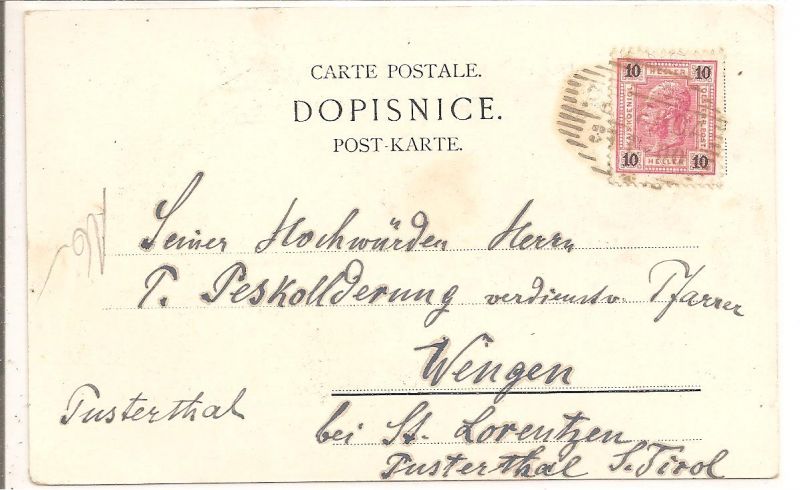 CARTE POSTALE.
DOPISNICE.
POST-KARTE.
10 HELLER 10
10 HELLER 10
Seiner Hochwürden Herrn
P. Peskollderung verdienstv. Pfarrer
Wengen
Pusterthal
bei St. Lorentzen
Pusterthal S. Tirol